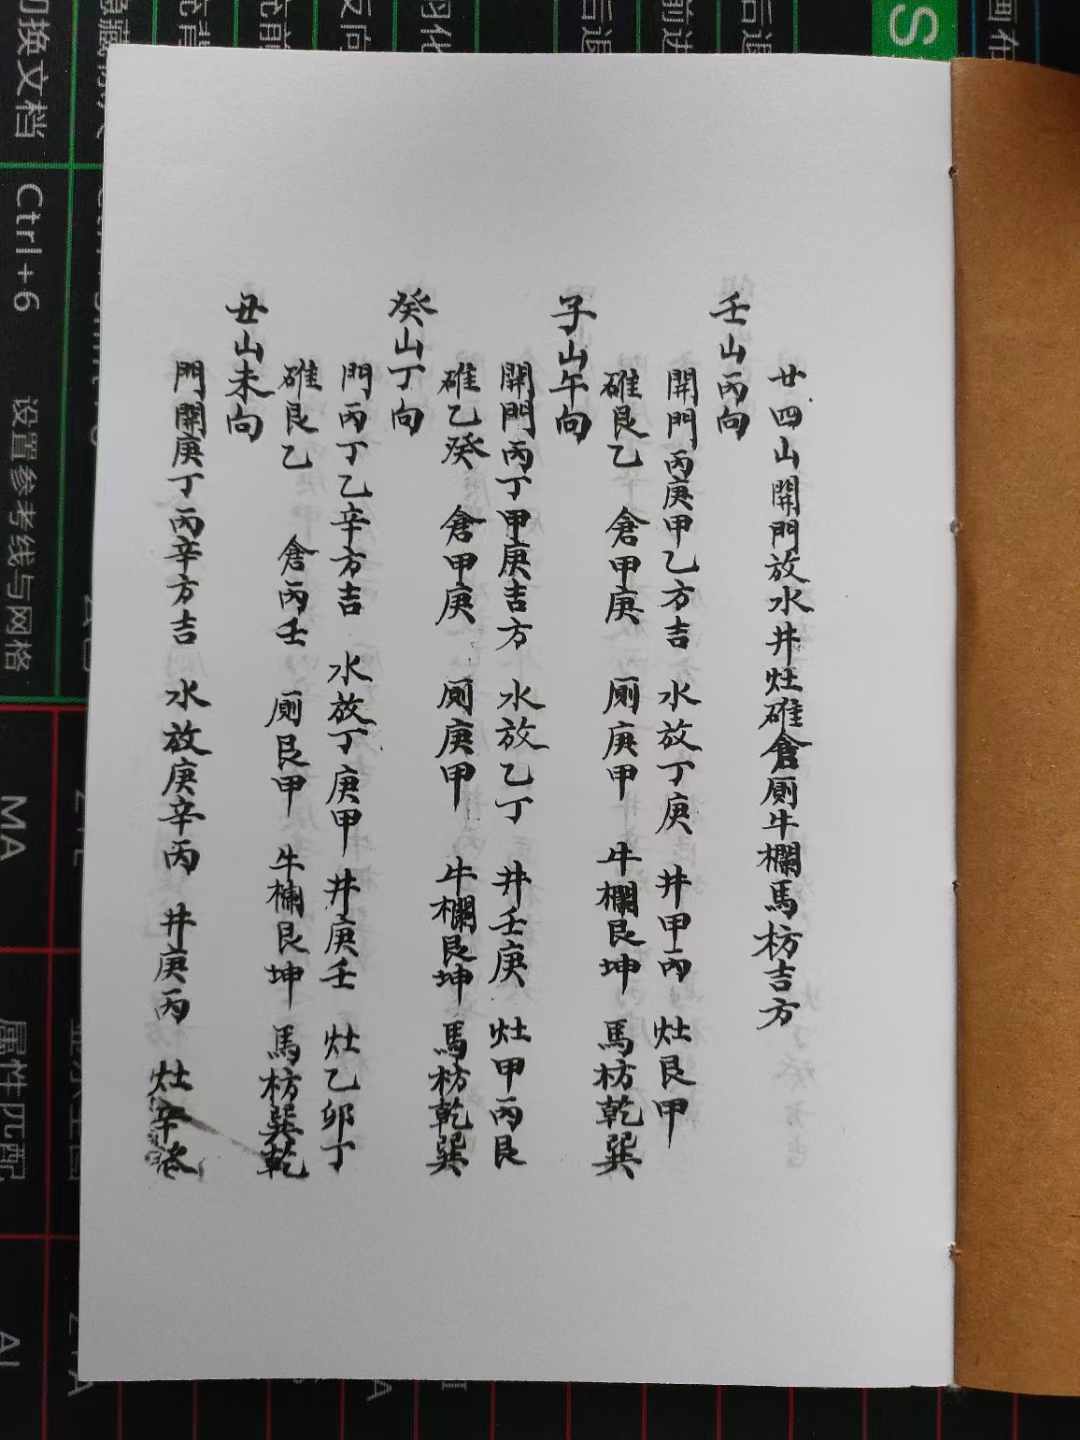 廿四山開門放水井灶碓倉厠牛欄馬枋吉方
壬山丙向
開門丙庚甲乙方吉 水放丁庚 井甲丙 灶艮甲
碓艮乙 倉甲庚 厠庚甲 牛欄艮坤 馬枋乾巽
子山午向
開門丙丁甲庚吉方 水放乙丁 井壬庚 灶甲丙艮
碓乙癸 倉甲庚 厠庚甲 牛欄艮坤 馬枋乾巽
癸山丁向
門丙丁乙辛方吉 水放丁庚甲 井庚壬 灶乙卯丁
碓艮乙 倉丙壬 厠艮甲 牛欄艮坤 馬枋巽乾
丑山未向
門開庚丁丙辛方吉 水放庚辛丙 井庚丙 灶辛
切换文档
Ctrl+6
设置参考线与网格
MA
属性匹配
S
后退
前进